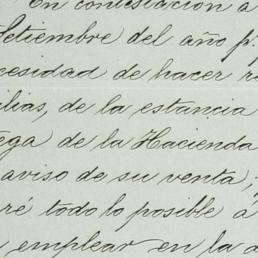 En contestación a
Setiembre del año p.
cesidad de hacer r
ilias, de la estancia
ega de la Hacienda
aviso de su venta;
ré todo lo posible á
emplear en la